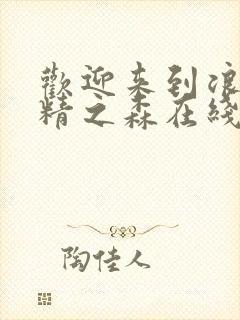 歡迎來到浪
精之森在綫
陶佳人